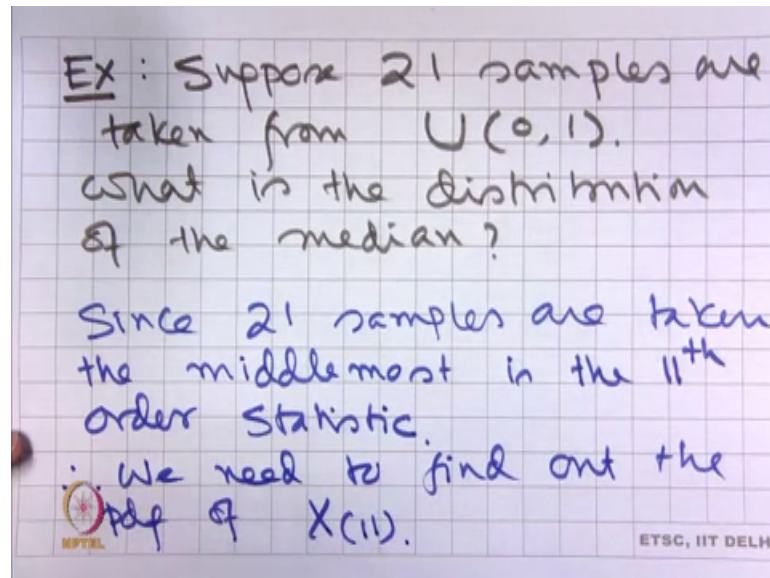 Ex: Suppose 21 samples are
taken from U(0,1).
What is the distribution
of the median?
Since 21 samples are taken
the middlemost is the 11th
order statistic.
∴ We need to find out the
pdf of X(11).
NPTEL
ETSC, IIT DELH